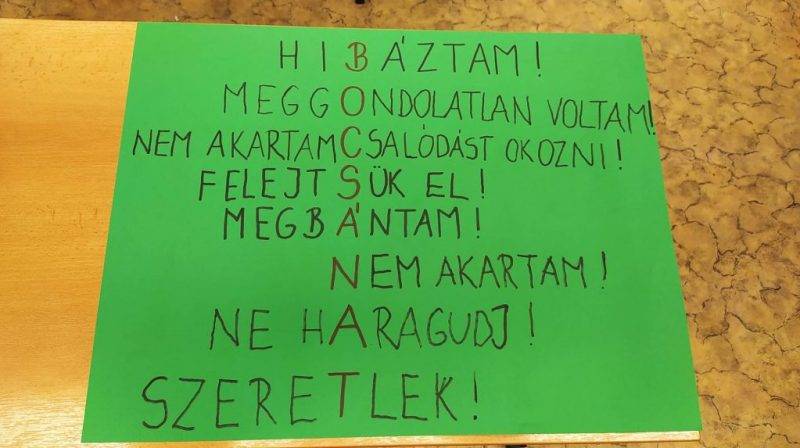 HIBÁZTAM!
MEGGONDOLATLAN VOLTAM!
NEM AKARTAM CSALÓDÁST OKOZNI!
FELEJTSÜK EL!
MEGBÁNTAM!
NEM AKARTAM!
NE HARAGUDJ!
SZERETLEK!